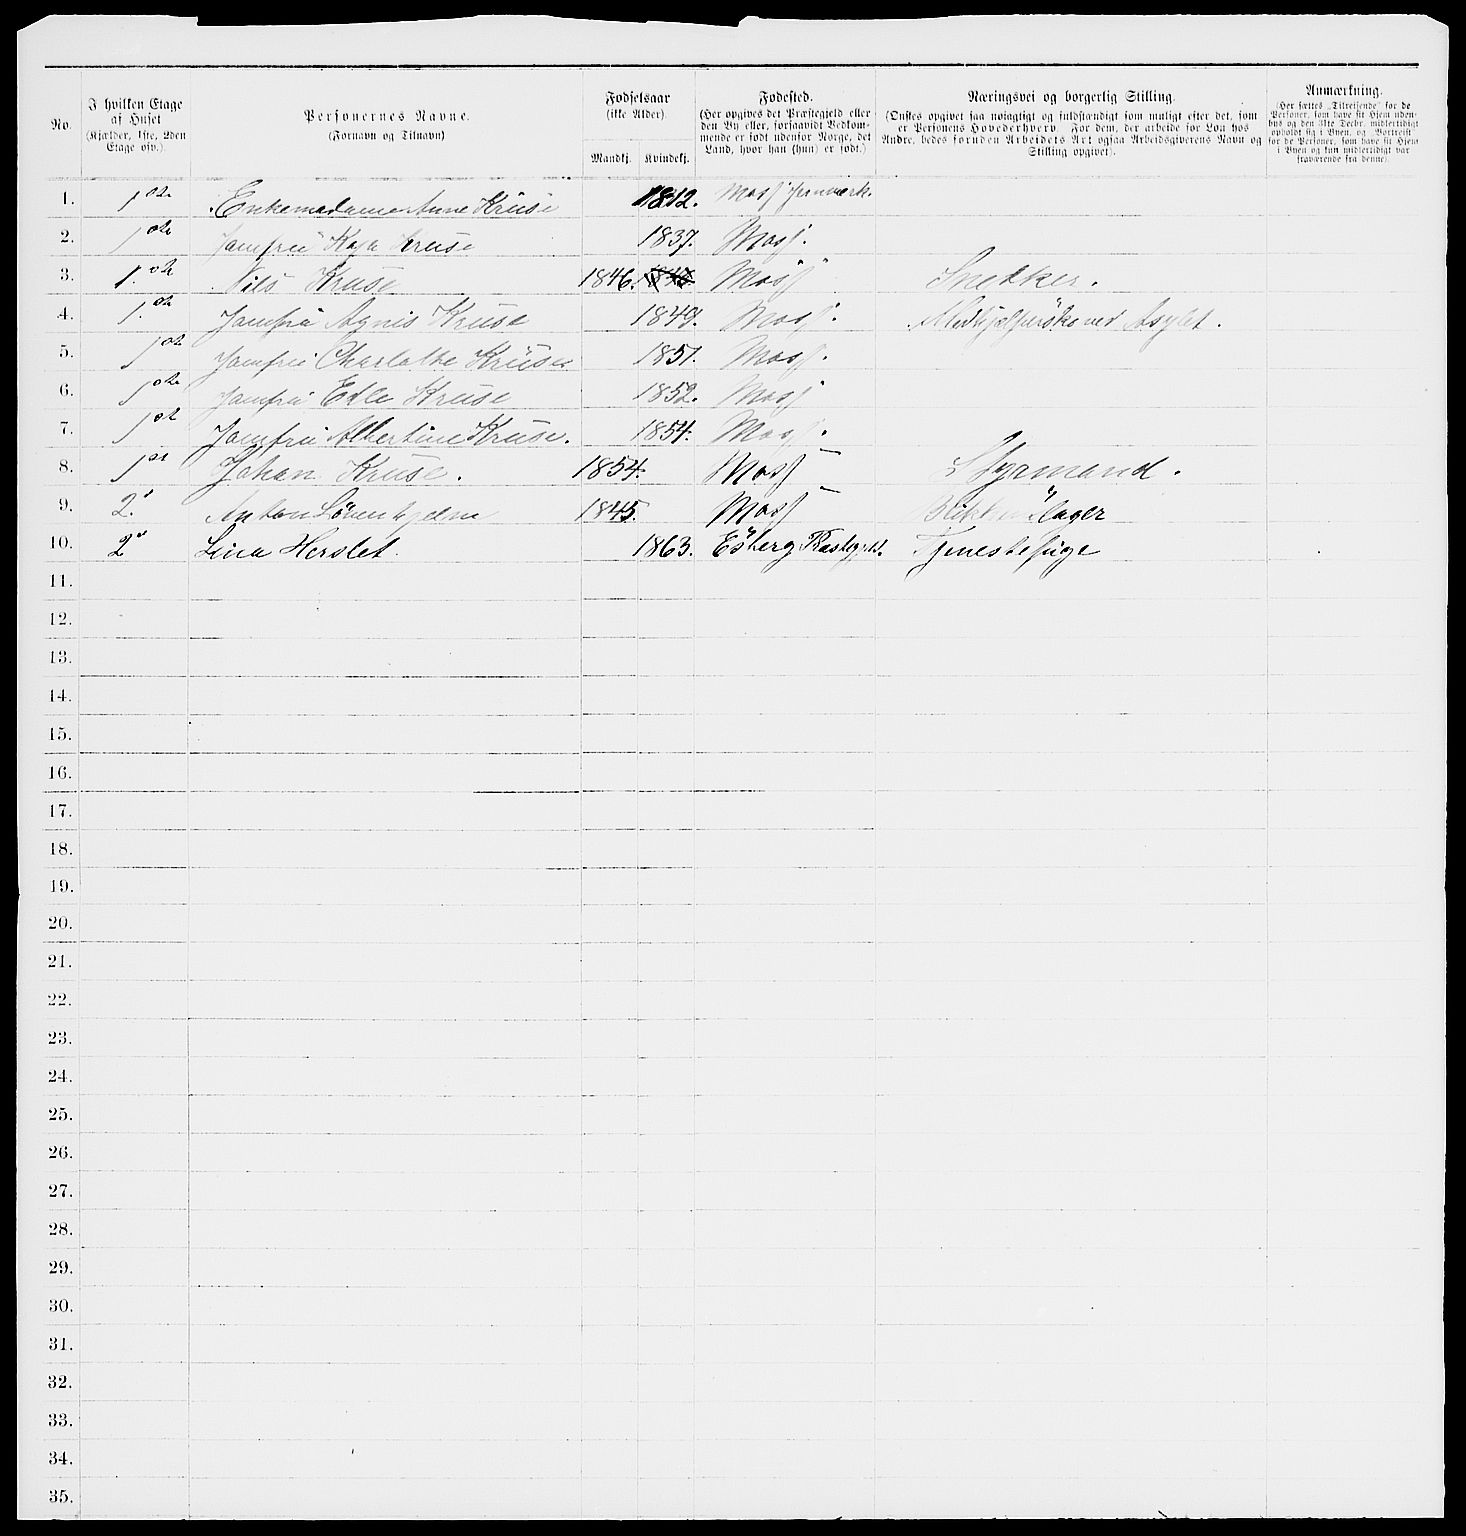 No. I hvilken Etage af Huset (Kjælder, 1ste, 2den Etage osv.). Personernes Navne. (Fornavn og Tilnavn) Fødselsaar (ikke Alder). Mandkj. Kvindekj. Fødested. (Her opgives det Præstegjeld eller den By eller, forsaavidt Vedkommende er født udenfor Norge, det Land, hvor han (hun) er født.) Næringsvei og borgerlig Stilling. (Ønskes opgivet saa nøiagtigt og fuldstændigt som muligt efter det, som er Personens Hovederhverv. For dem, der arbeide for Løn hos Andre, bedes foruden Arbeidets Art ogsaa Arbeidsgiverens Navn og Stilling opgivet). Anmærkning. (Her sættes „Tilreisende" for de Personer, som have sit Hjem udenbys og den 31te Decbr. midlertidigt opholdt sig i Byen, og „Bortreist" for de Personer, som have sit Hjem i Byen og kun midlertidigt var fraværende fra denne).
1. 1ste Enkemadame Anne Kruse 1812. Moss Jernværk.
2. 1ste Jomfru Kaja Kruse 1837. Moss.
3. 1ste Nils Kruse 1846. Moss Snekker.
4. 1ste Jomfru Agnis Kruse 1849. Moss. Medhjælperske ved Asylet.
5. 1ste Jomfru Charlotte Kruse 1851. Moss.
6. 1ste Jomfru Edle Kruse 1852. Moss
7. 1ste Jomfru Albertine Kruse. 1854. Moss.
8. 1ste Johan Kruse. 1854. Moss Styrmand.
9. 2. Anton Lövenhjelm 1845. Moss
10. 2 Lina Herslet. 1863. Tjenestepige
11.
12.
13.
14.
15.
16.
17.
18.
19.
20.
21.
22.
23.
24.
25.
26.
27.
28.
29.
30.
31.
32.
33.
34.
35.